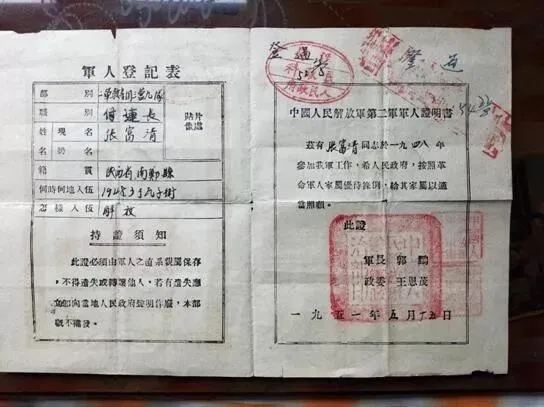 軍人登記表
部別
職別 付連長
姓名 現名 張富清
曾名
貼片像處
籍貫 陝西省南鄭縣
何時何地入伍
怎樣入伍 解放
持證須知
此證必須由軍人之直系親屬保存
，不得遺失或轉讓他人，若有遺失應
立即向當地人民政府聲明作廢，本部
概不補發。
登
中國人民解放軍第二軍軍人證明書
茲有張富清同志於一九四八年
參加我軍工作，希人民政府，按照革
命軍人家屬優待條例，給其家屬以適
當照顧。
此證
軍長 郭鵬
政委 王恩茂
一九五一年五月十五日